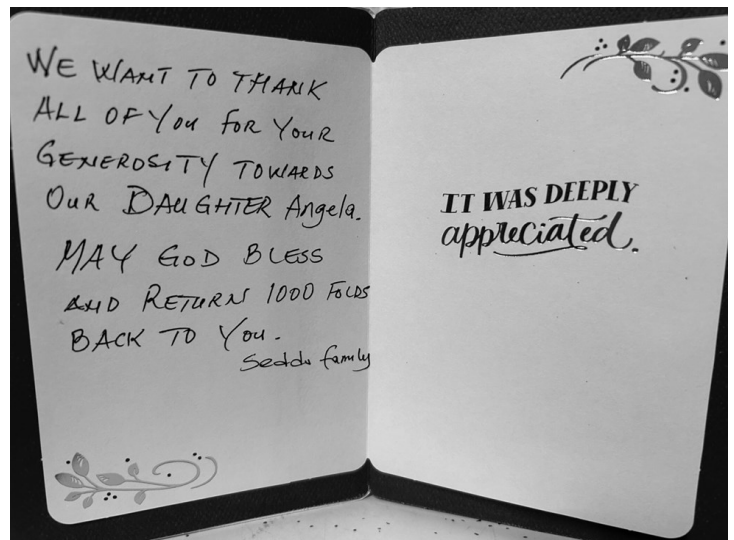 WE WANT TO THANK
ALL OF YOU FOR YOUR
GENEROSITY TOWARDS
OUR DAUGHTER Angela.
MAY GOD BLESS
AND RETURN 1000 FOLDS
BACK TO YOU.
family
IT WAS DEEPLY
appreciated.